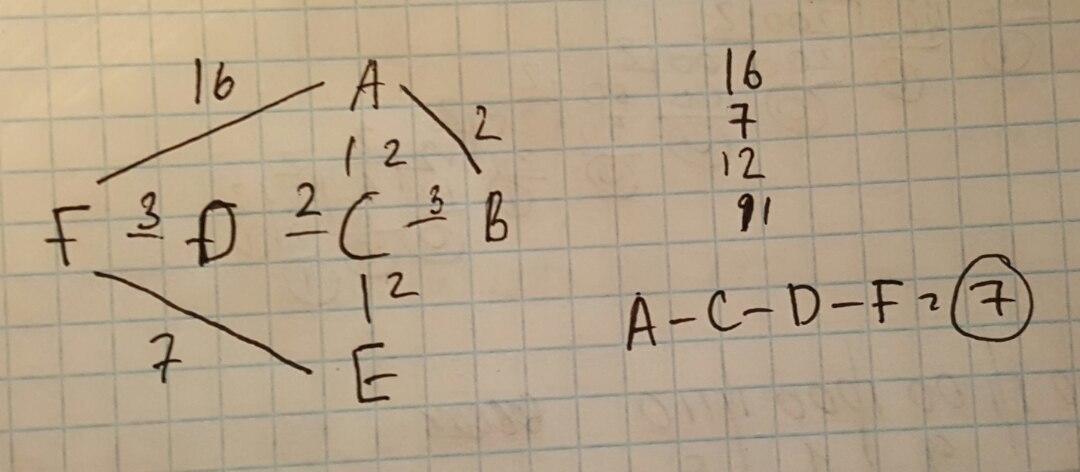 16 A 2
| 2
F 3 D 2 C 3 B
| 2
7 E
16
7
12
91
A-C-D-F=7